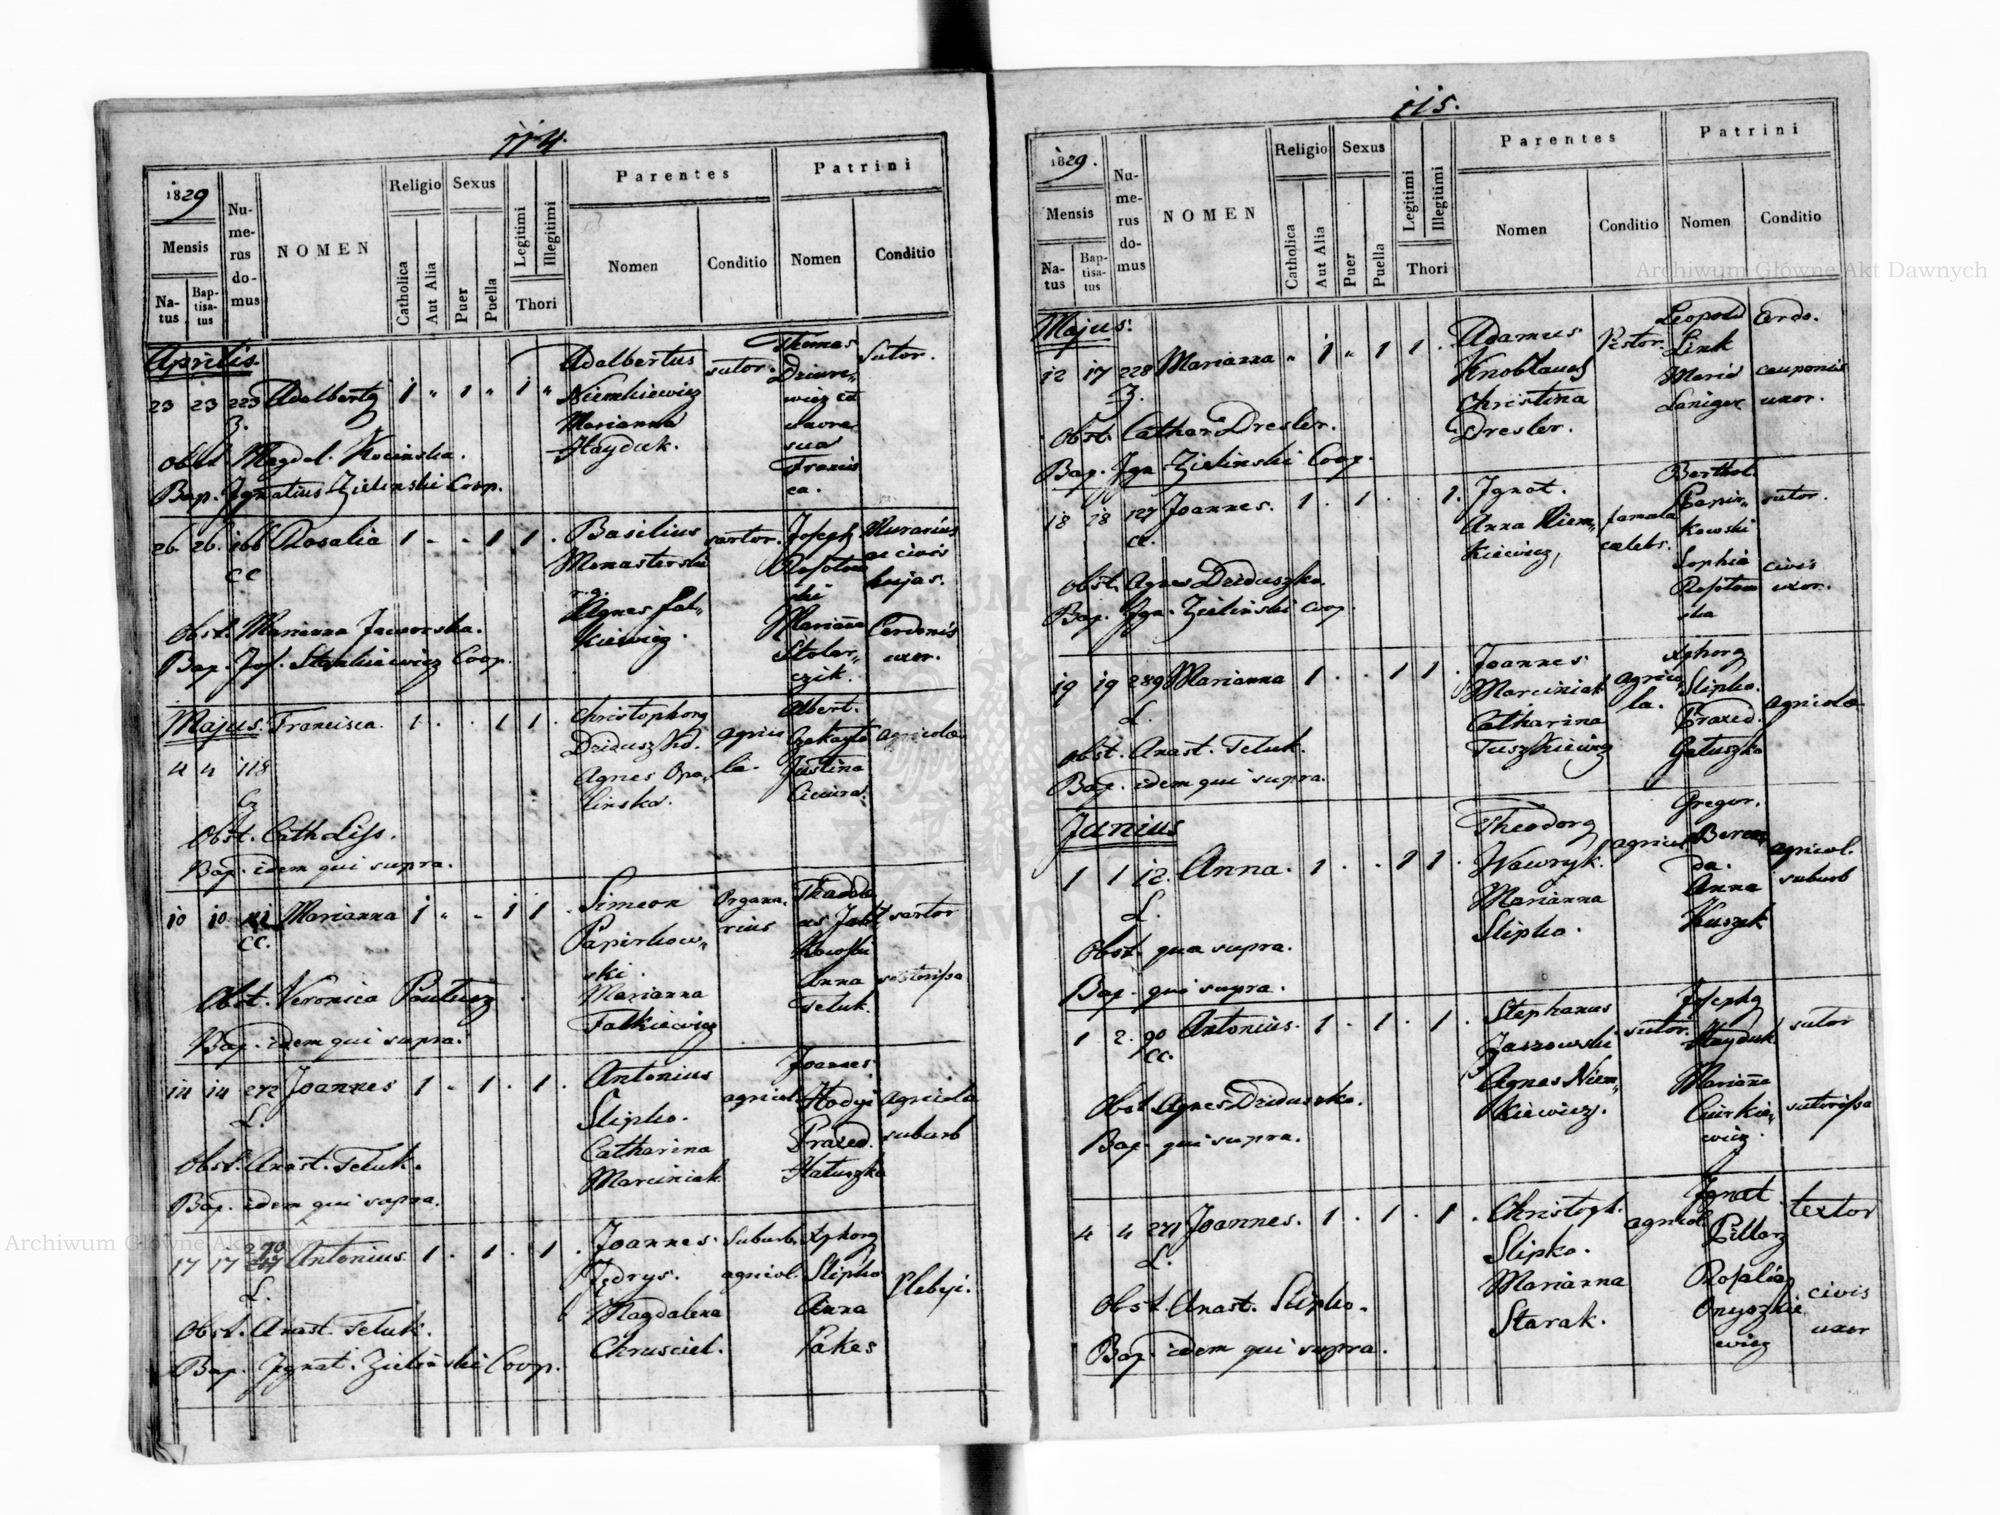 114.
1829
Mensis
Natus
Baptisatus
Numerus domus
NOMEN
Religio
Catholica
Aut Alia
Sexus
Puer
Puella
Legitimi
Illegitimi
Thori
Parentes
Nomen
Conditio
Patrini
Nomen
Conditio
Aprilis.
23 23 223 Adalbertg 1 " 1 " 1 " Adalbertus sutor. Thomas Sutor.
Niemkiewicz
Marianna
Hayduk.
wicz et
sua
Francis
ca.
Obst. Magdal. Kocinska.
Bap. Ignatius Zielinski Coop.
26 26 166 Rosalia 1 - - 1 1 . Basilius sartor. Joseph Murarius
CC
Monasterski
Agnes Fal-
kiewicz.
ac civis
hujas.
Mariana Cerdonis
Stolar- uxor.
czik.
Obst. Marianna Jaworska.
Bap. Jos. Stankiewicz Coop.
Majus. Francisca. 1 . . 1 1 . Christophorg agrico Albert. agricolae
4 4 118
Dziduszko. la.
Agnes Opa- Justina
linska.
Obst. Cath. Liss.
Bap. idem qui supra.
10 10 Marianna 1 " - 1 1 . Simeon Organa- Thadde
CC.
Papirkow- rius us Jabł sartor
ski. kowski
Marianna Anna sutorissa
Falkiewicz Teluk.
Obst. Veronica Pautusz
Bap. idem qui supra.
14 14 272 Joannes 1 - 1 . 1 . Antonius agricol. Joannes
L.
Slipko. Hodyi Agricola
Catharina Praxed. suburb
Marciniak Hatuszka
Obst. Anast. Teluk.
Bap. idem qui supra.
17 17 270 Antonius. 1 . 1 . 1 . Joannes. Suburb. Xphorg
L.
Jędrys. agricol. Slipko Plebeji.
Magdalena Anna
Chrusciel. Pakes
Obst. Anast. Teluk.
Bap. Ignat. Zielinski Coop.
115.
1829.
Mensis
Natus
Baptisatus
Numerus domus
NOMEN
Religio
Catholica
Aut Alia
Sexus
Puer
Puella
Legitimi
Illegitimi
Thori
Parentes
Nomen
Conditio
Patrini
Nomen
Conditio
Majus.
12 17 228 Marianna " 1 " 1 1 . Adamus Pistor. Leopold Cerdo.
Knoblauch Link
Christina Maria cauponis
Dresler. Laniger uxor.
Obst. Cathar Dresler.
Bap. Iga. Zielinski Coop.
18 18 127 Joannes. 1 . 1 . . 1. Ignot. Barthol.
CC.
Anna Niem- famula Papir- sutor.
kiewicz, caelebs. kowski
Sophia civis
Rosotom uxor.
ska
Obst. Agnes Dziduszko.
Bap. Iga. Zieliński Coop.
19 19 289 Marianna 1 . . 1 1 . Joannes. agrico- Xphorg
L.
Marciniak la. Slipko. agricolae
Catharina Praxed.
Tuszkiewicz Gatuszka
Obst. Anast. Teluk.
Bap. idem qui supra.
Junius
1 1 12. Anna. 1 . . 1 1 . Theodorg agricol Gregor.
L.
Wawryk. Beren agricol.
Marianna da. suburb
Slipko. Anna
Kuszyk
Obst. qua supra.
Bap. qui supra.
1 2. 90 Antonius. 1 . 1 . 1 . Stephanus sutor. Josephg sutor
CC.
Jaszowski Hayduk
Agnes Niem- Mariana
kiewicz. sutorissa
wicz.
Obst. Agnes Dziduszko.
Bap. qui supra.
4 4 271 Joannes. 1 . 1 . 1 . Christoph. agricol. Ignat textor
L.
Slipko. Pillarz
Marianna Rosalia civis
Starak. Onyszkie uxor
wicz
Obst. Anast. Slipko.
Bap. idem qui supra.
Archiwum Główne Akt Dawnych
Archiwum Główne Akt Dawnych